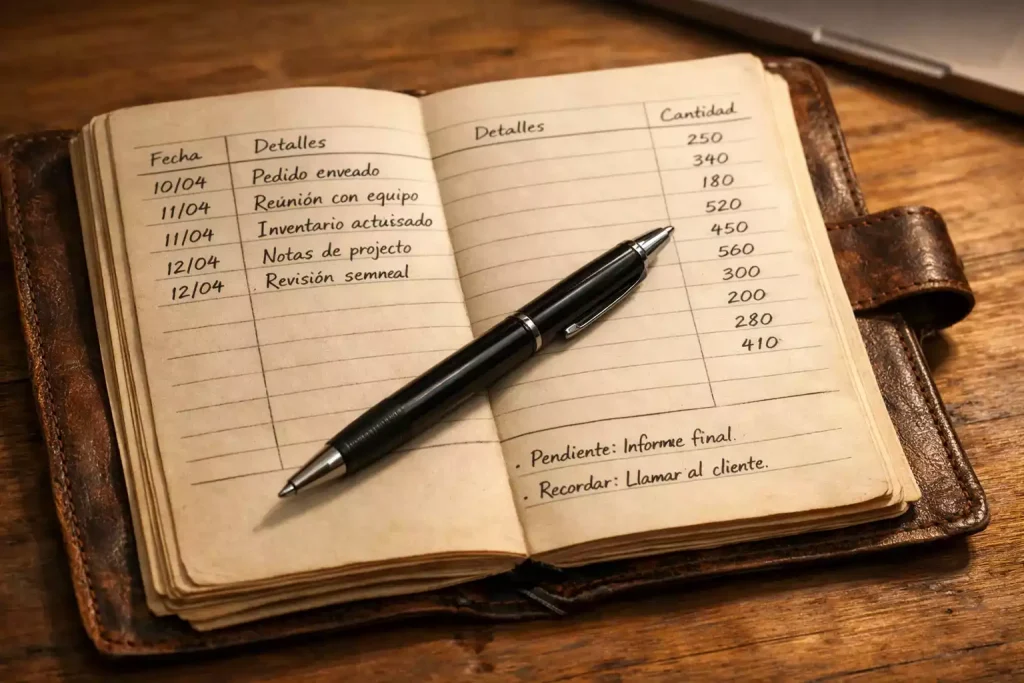 Fecha Detalles
10/04 Pedido enveado
11/04 Reúnión con equipo
11/04 Inventario actuisado
12/04 Notas de projecto
12/04 Revisión semneal
Detalles Cantidad
250
340
180
520
450
560
300
200
280
410
· Pendiente: Informe final.
· Recordar: Llamar al cliente.